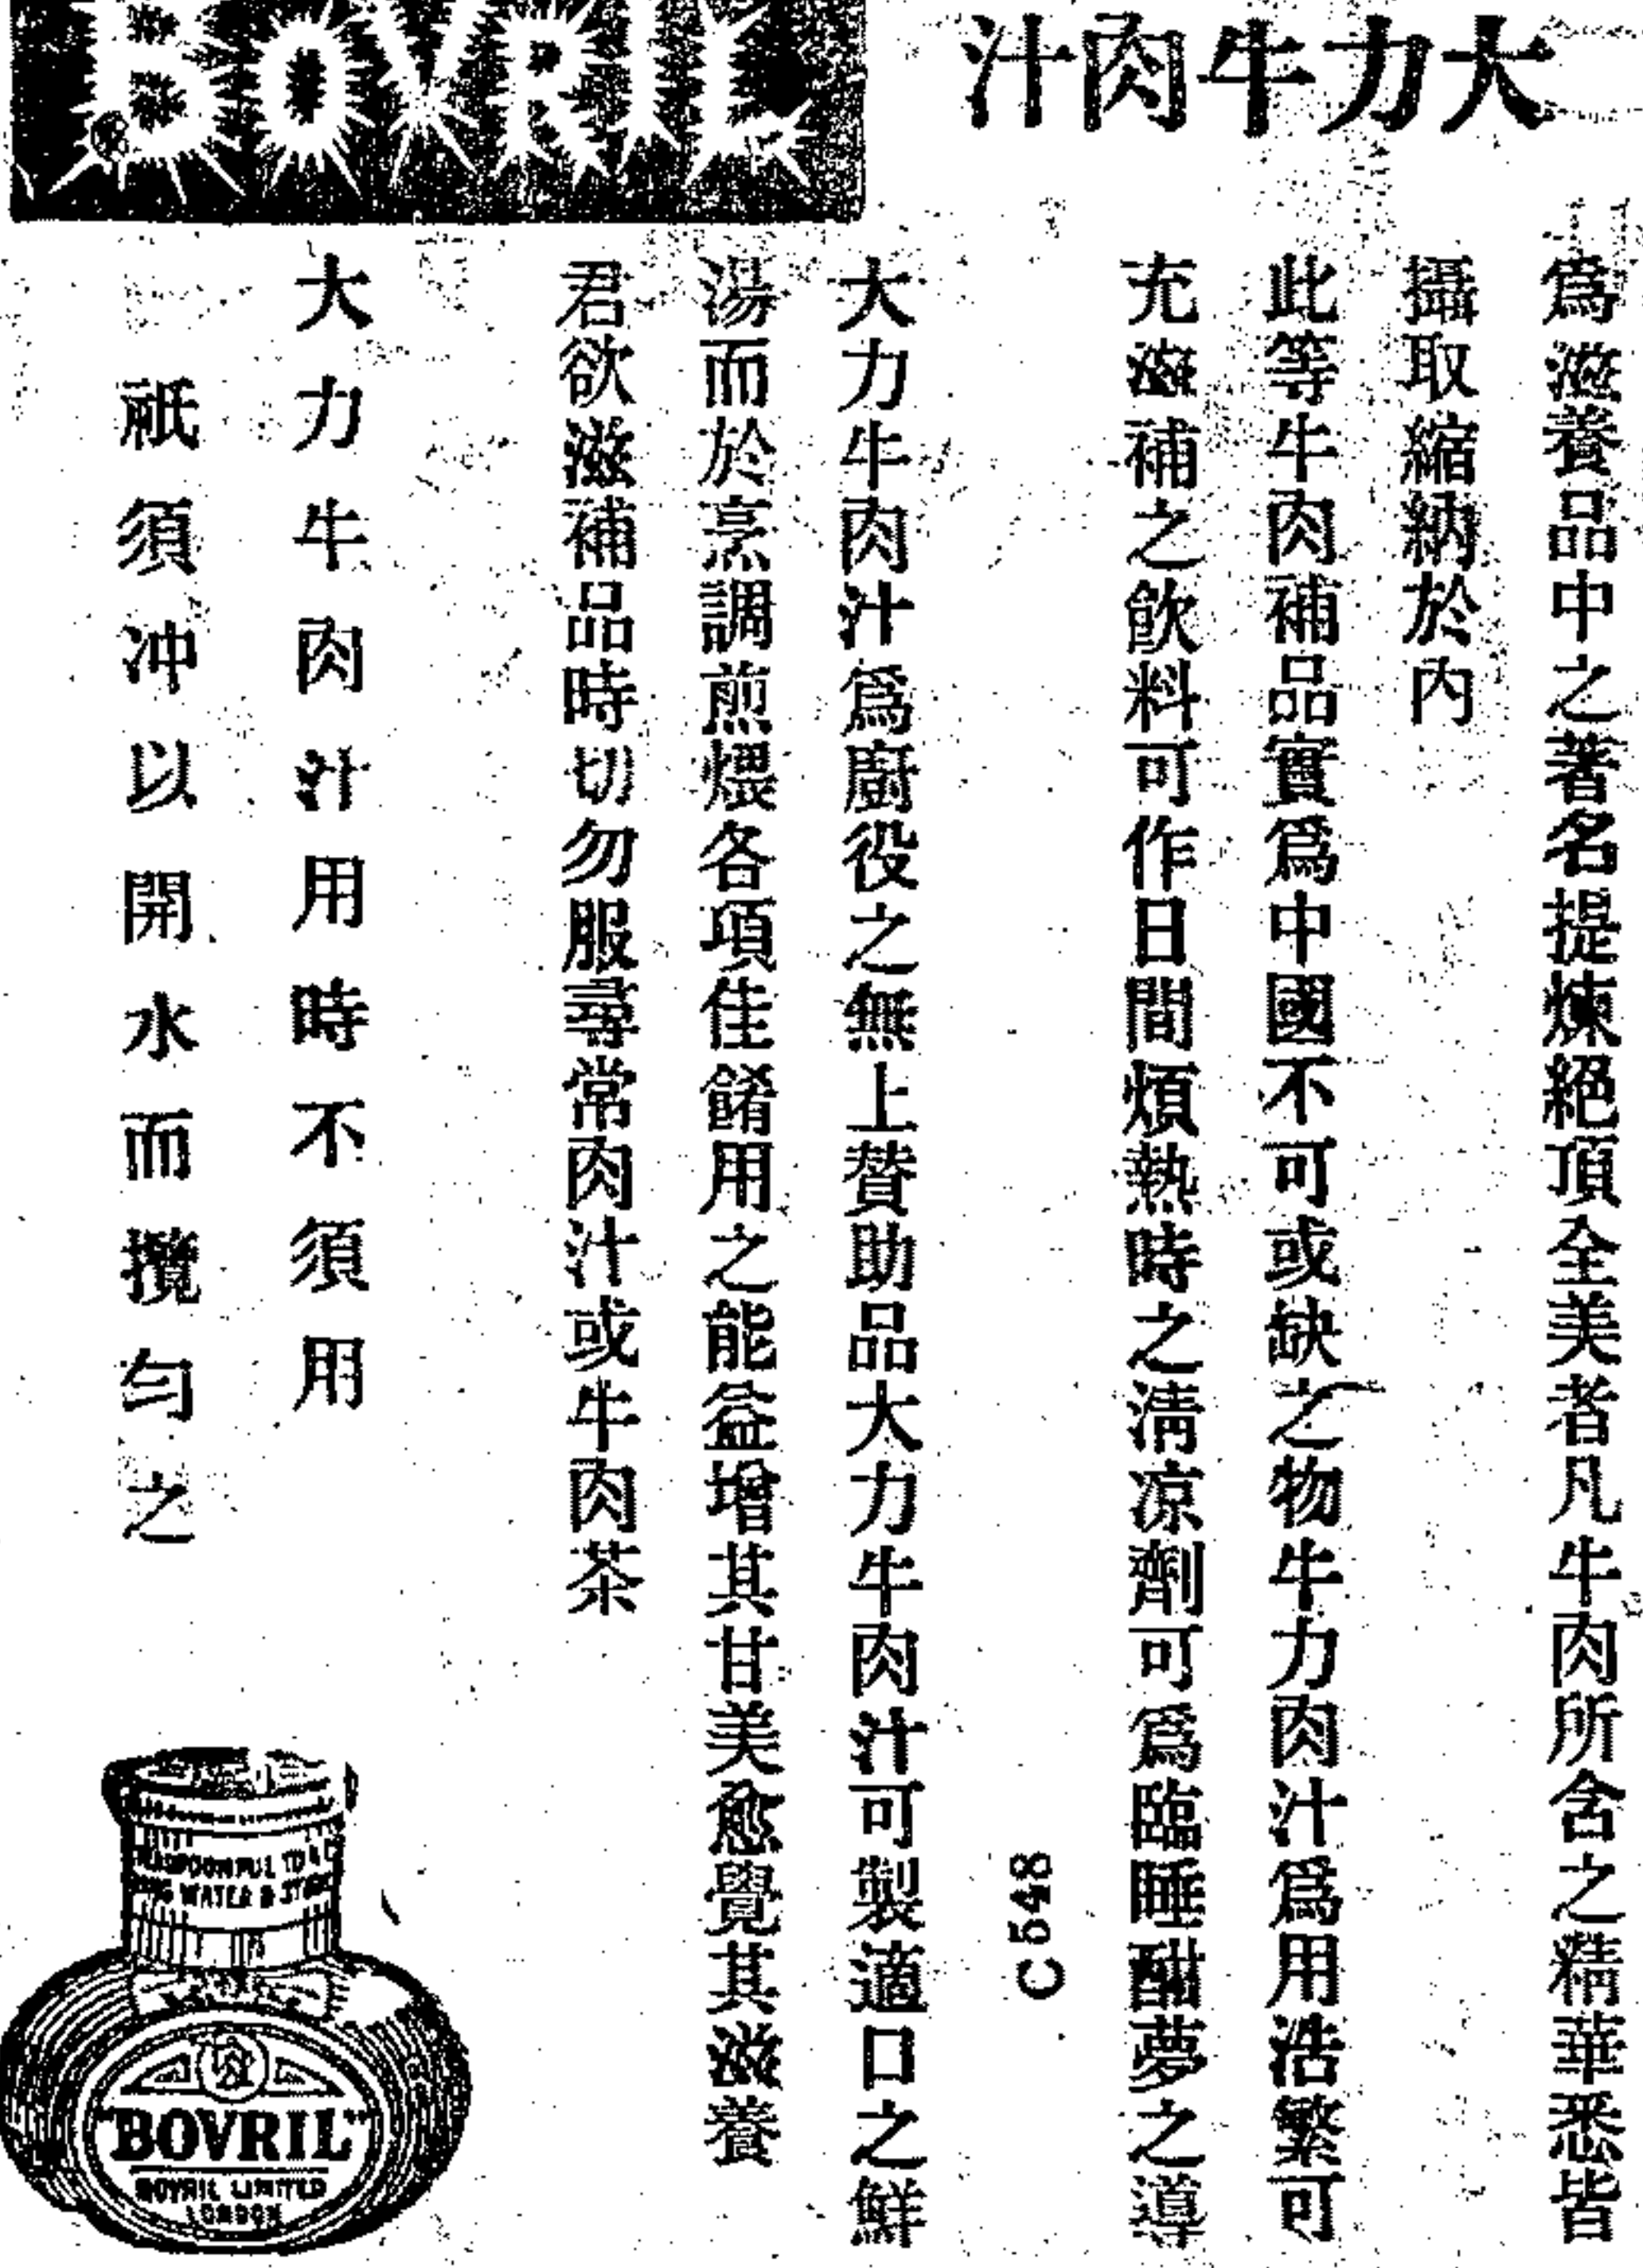 大力牛肉汁
BOVRIL
爲滋養品中之著名提煉絕頂全美者凡牛肉所含之精華悉皆
攝取縮納於內
此等牛肉補品實爲中國不可或缺之物牛力肉汁爲用浩繁可
充滋補之飲料可作日間煩熱時之淸凉劑可爲臨睡酣夢之導
C 548
大力牛肉汁爲廚役之無上贊助品大力牛肉汁可製適口之鮮
湯而於烹調煎煨各項佳餚用之能益增其甘美愈覺其滋養
君欲滋補品時切勿服尋常肉汁或牛肉茶
大力牛肉汁用時不須用
祇須冲以開水而攪勻之
"BOVRIL"
BOVRIL LIMITED
LONDON